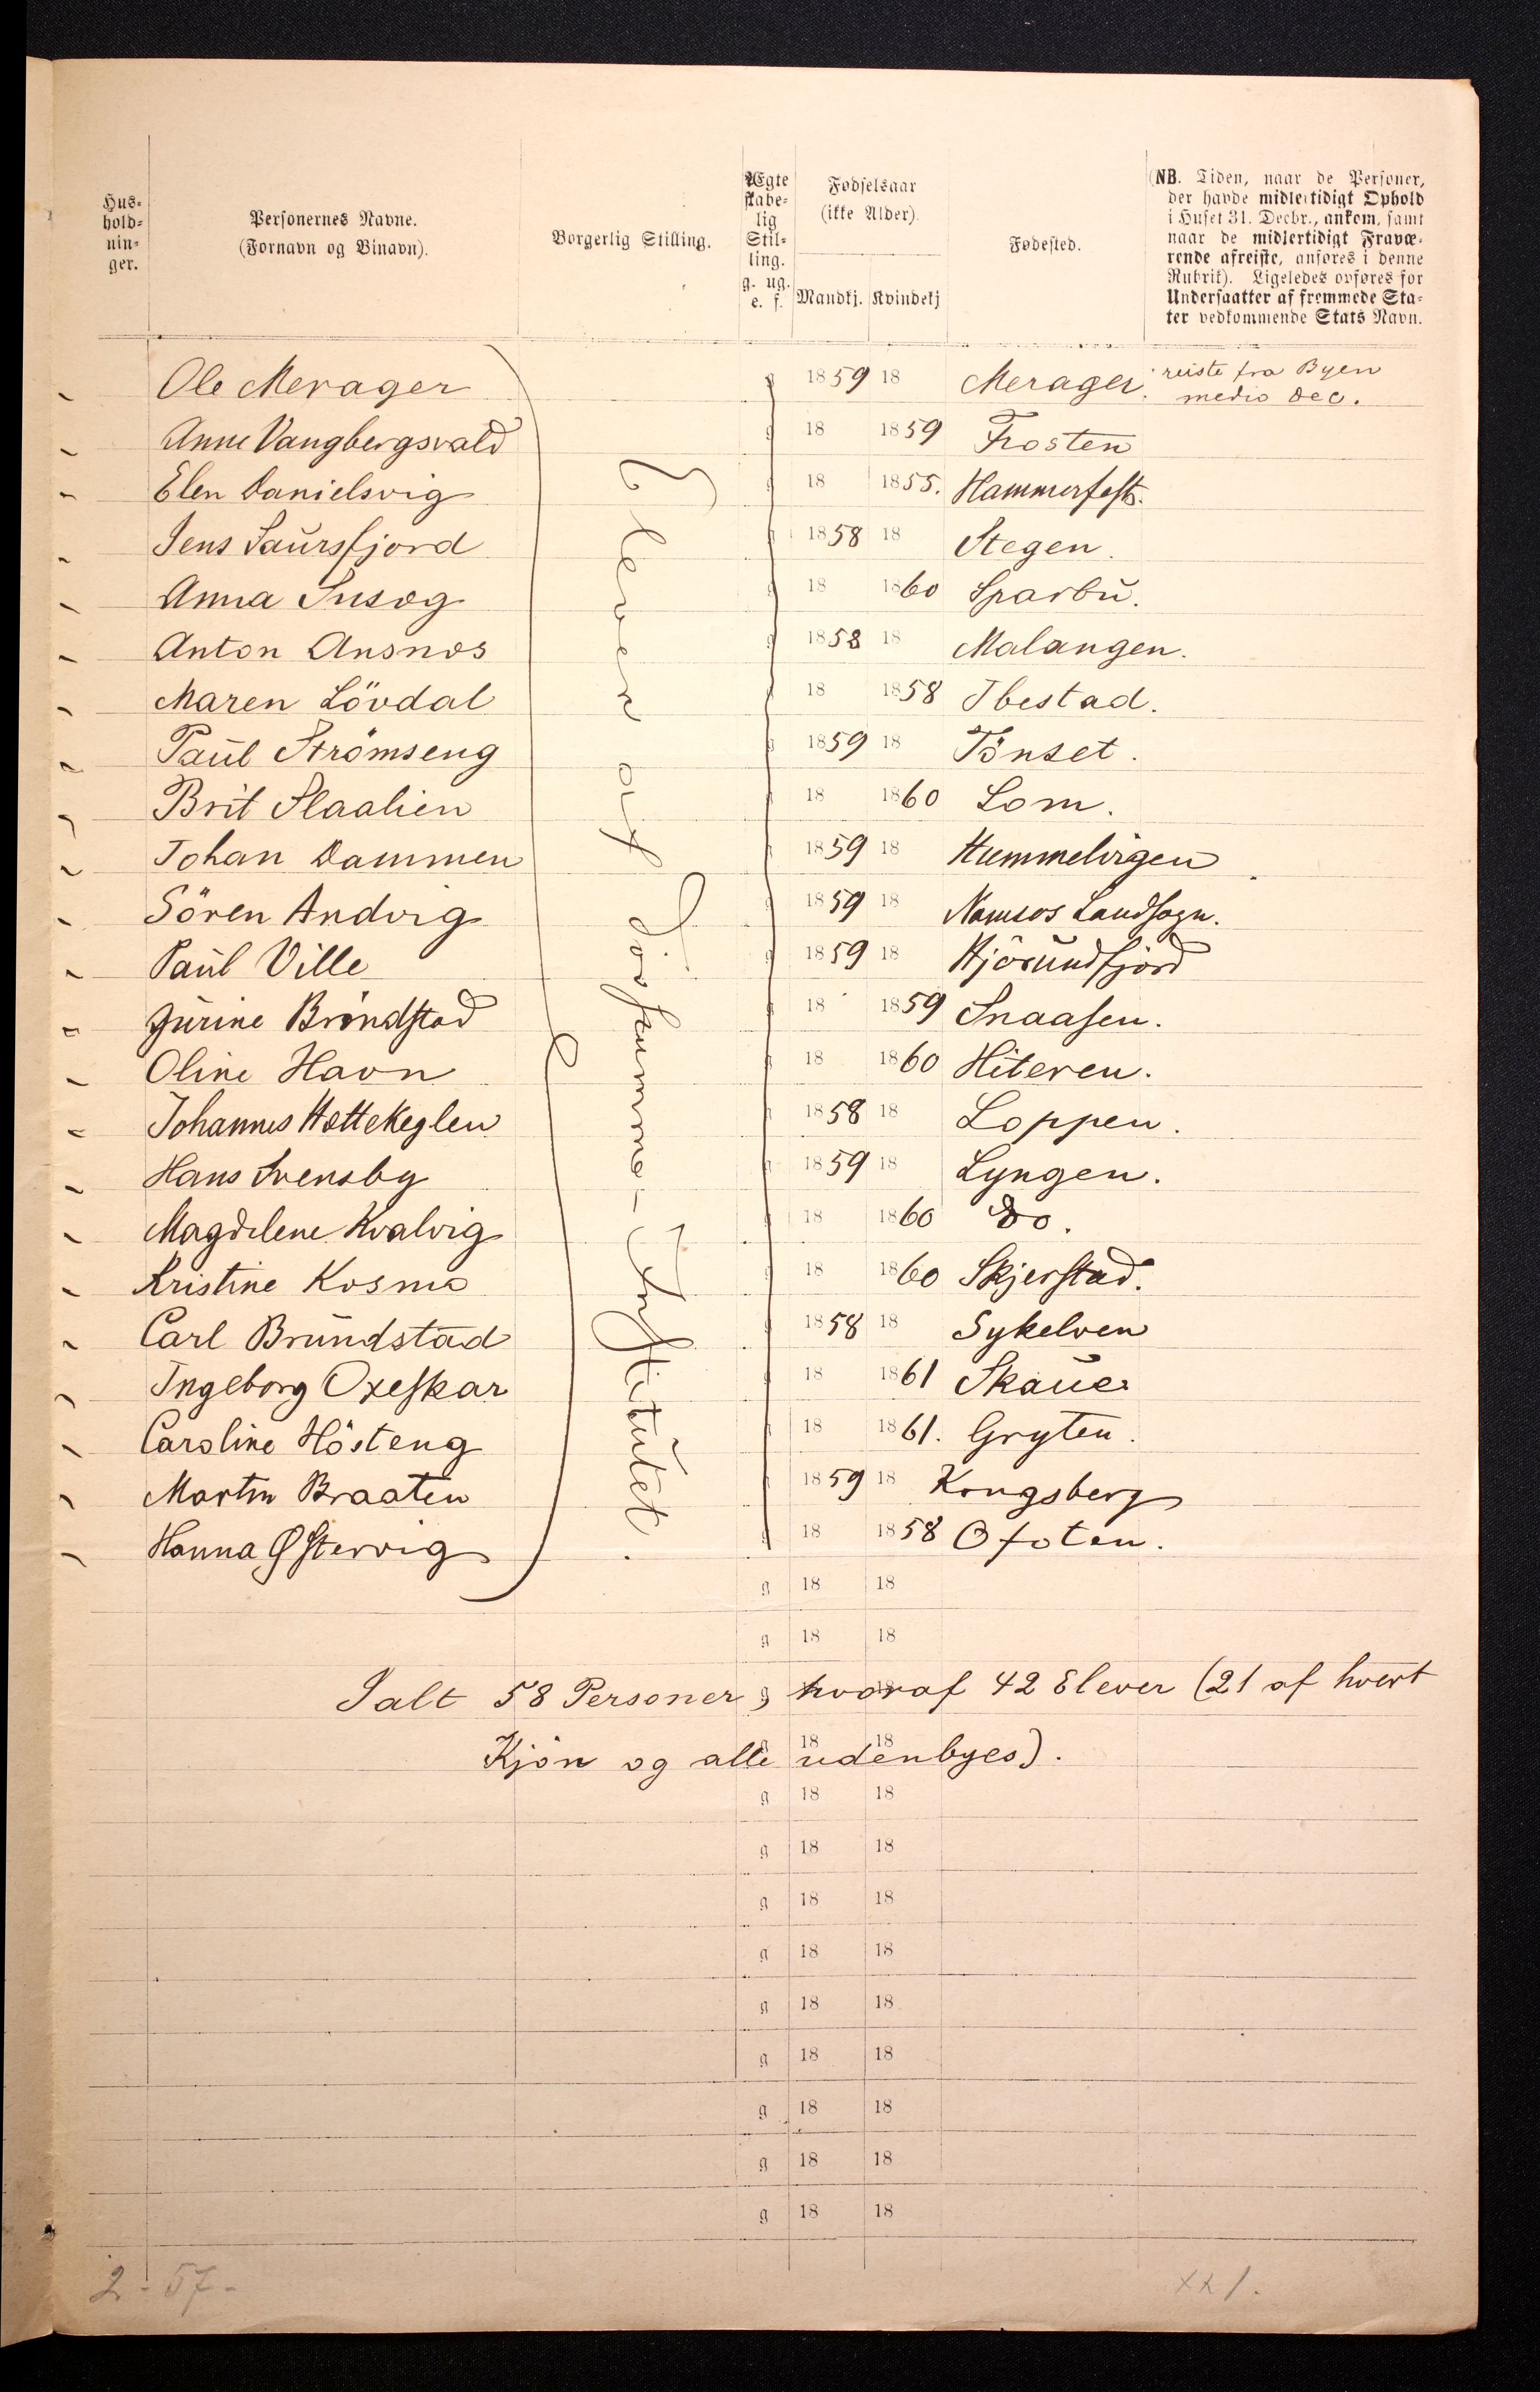 Hus-
hold-
nin-
ger.
Personernes Navne.
(Fornavn og Binavn).
Borgerlig Stilling.
Ægte
skabe-
lig
Stil-
ling.
g. ug.
e. f.
Fødselsaar
(ikke Alder).
Mandkj. Kvindekj
Fødested.
(NB. Tiden, naar de Personer,
der havde midlertidigt Ophold
i Huset 31. Decbr., ankom, samt
naar de midlertidigt Fravæ-
rende afreiste, anføres i denne
Rubrik). Ligeledes opføres for
Undersaatter af fremmede Sta-
ter vedkommende Stats Navn.
Ole Merager g 1859 18 Merager. reiste fra Byen
medio Dec.
Anne Vangbergsvald g 18 1859 Frosten
Elen Danielsvig g 18 1855. Hammerfest.
Jens Saursfjord g 1858 18 Stegen.
Anna Susøg g 18 1860 Sparbu.
Anton Ansnes g 1858 18 Malangen.
Maren Lövdal g 18 1858 Ibestad.
Paul Strömseng g 1859 18 Tönset.
Brit Slaalien g 18 1860 Lom.
Johan Dammen g 1859 18 Hummelvigen
Sören Andvig g 1859 18 Namsos Landsogn.
Paul Ville g 1859 18 Hjörundfjord
Jurine Bröndstad g 18 1859 Snaasen.
Oline Havn g 18 1860 Hiteren.
Johannes Hættekeglen g 1858 18 Loppen.
Hans Svensby g 1859 18 Lyngen.
Magdelene Kvalvig g 18 1860 Do.
Kristine Kosmo g 18 1860 Skjerstad.
Carl Brundstad g 1858 18 Sykelven
Ingeborg Oxeskar g 18 1861 Skaue
Caroline Hösteng g 18 1861. Gryten.
Martin Braaten g 1859 18 Kongsberg
Hanna Østervig g 18 1858 Ofoten.
Elever af Døvstumme-Institutet.
g 18 18
g 18 18
Ialt 58 Personer, hvoraf 42 Elever (21 af hvert
g 18
Kjön og alle udenbyes).
g 18 18
g 18 18
g 18 18
g 18 18
g 18 18
g 18 18
g 18 18
g 18 18
g 18 18
g 18 18
2 - 57 -
xx 1.